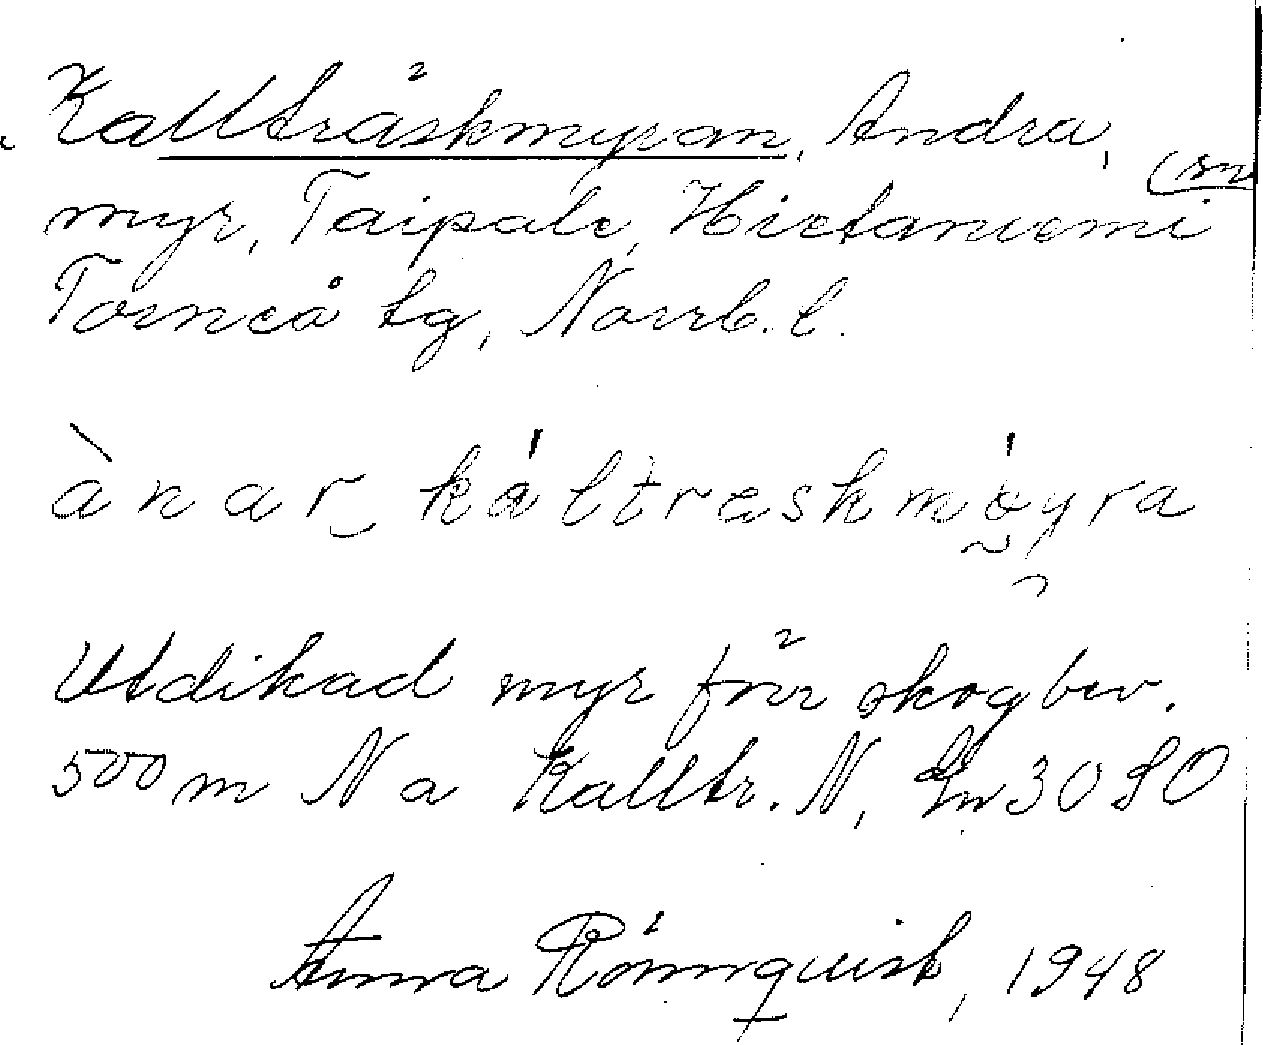 Kallträskmyran, Andra,
myr, Taipale, Hietaniemi sn
Torneå tg, Norrb. l.
ànar kál̀træskmýra
Utdikad myr för skogbev.
500 m N a Kalltr. N, 3080
Anna Rönnquist, 1948